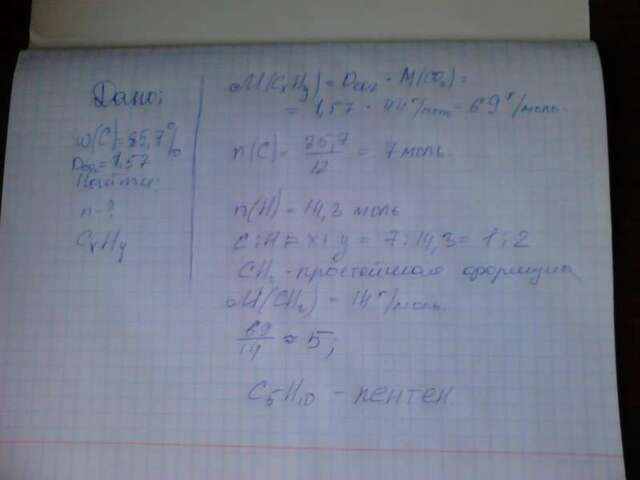 Дано:
w(C)=85,7%
Dco₂=1,57
Найти:
n-?
CxHy
M(CxHy)=Dco₂·M(CO₂)=
=1,57·44г/моль=69г/моль.
n(C)=85,7/12=7моль.
n(H)=14,3 моль
C:H=x:y=7:14,3=1:2
CH₂-простейшая формула
M(CH₂)=14г/моль.
69/14≈5;
C₅H₁₀-пентен